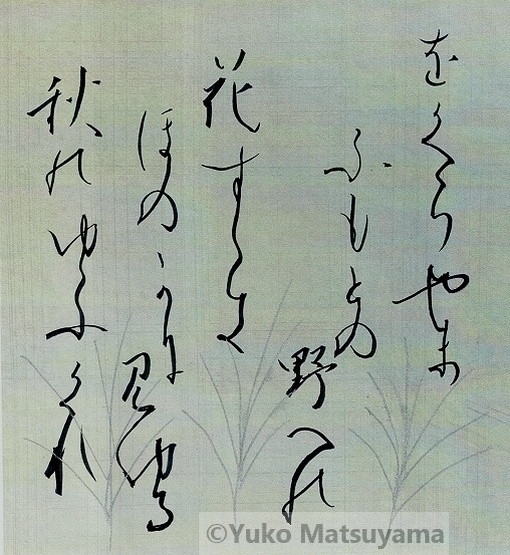 をくらやま
ふもとの野への
花すゝき
ほのかに見ゆる
秋のゆふくれ
©Yuko Matsuyama